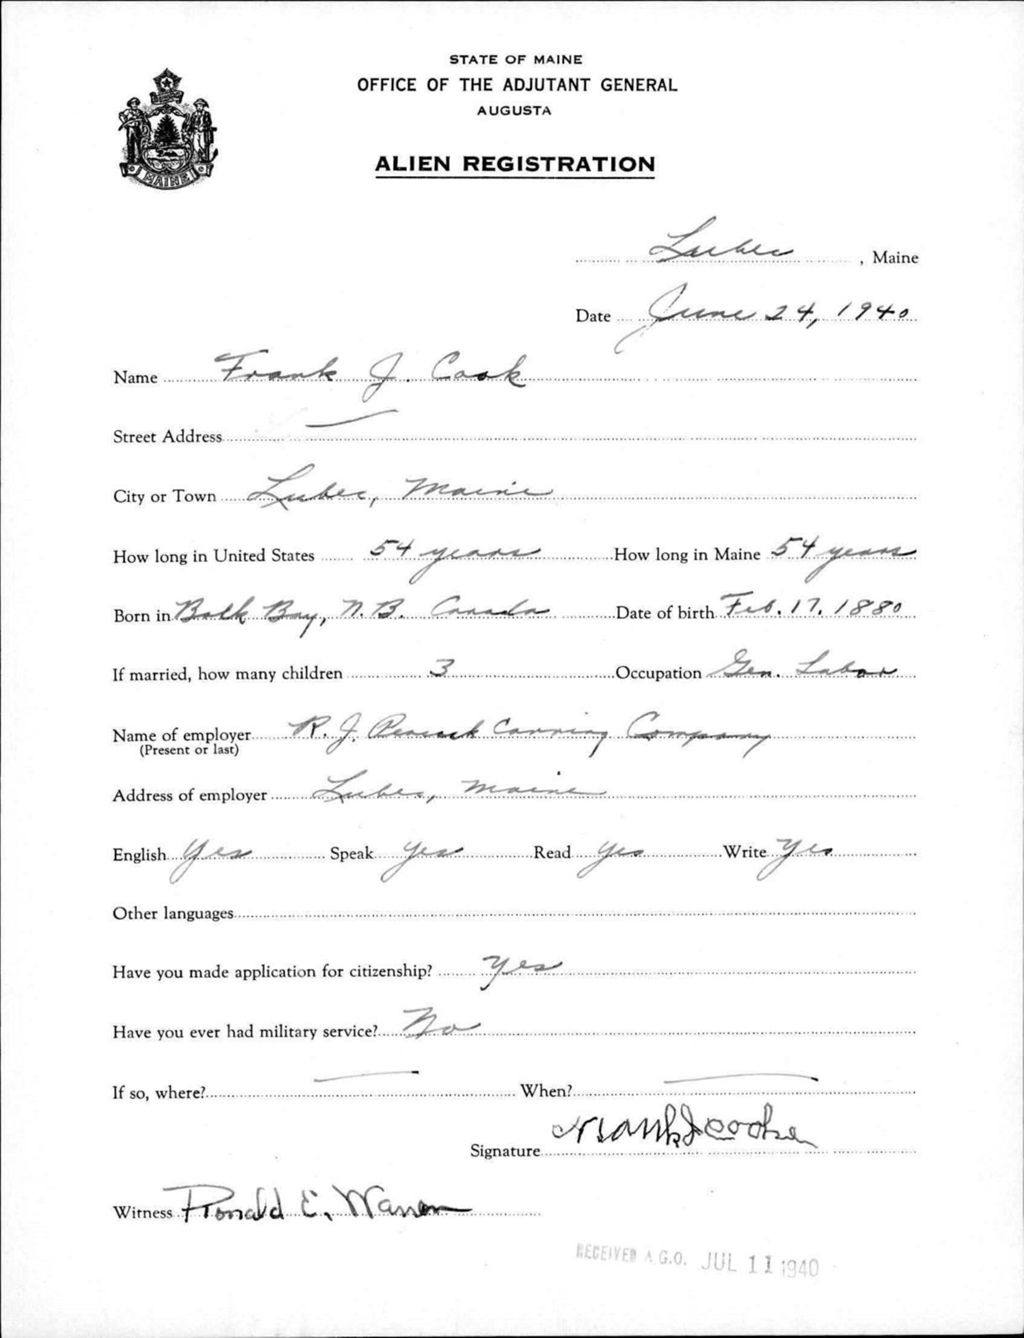 STATE OF MAINE
OFFICE OF THE ADJUTANT GENERAL
AUGUSTA
ALIEN REGISTRATION
MAINE
Lubec, Maine
Date June 24, 1940
Name Frank J. Cook
Street Address —
City or Town Lubec, Maine
How long in United States 54 years How long in Maine 54 years
Born in Back Bay, N.B. Canada Date of birth Feb. 17, 1880
If married, how many children 3 Occupation Gen. Labor
Name of employer R. J. Peacock Canning Company
(Present or last)
Address of employer Lubec, Maine
English Yes Speak Yes Read Yes Write Yes
Other languages
Have you made application for citizenship? Yes
Have you ever had military service? No
If so, where? — When? —
Signature Frank J Cooke
Witness Ronald E. Warren
RECEIVED A.G.O. JUL 11 1940